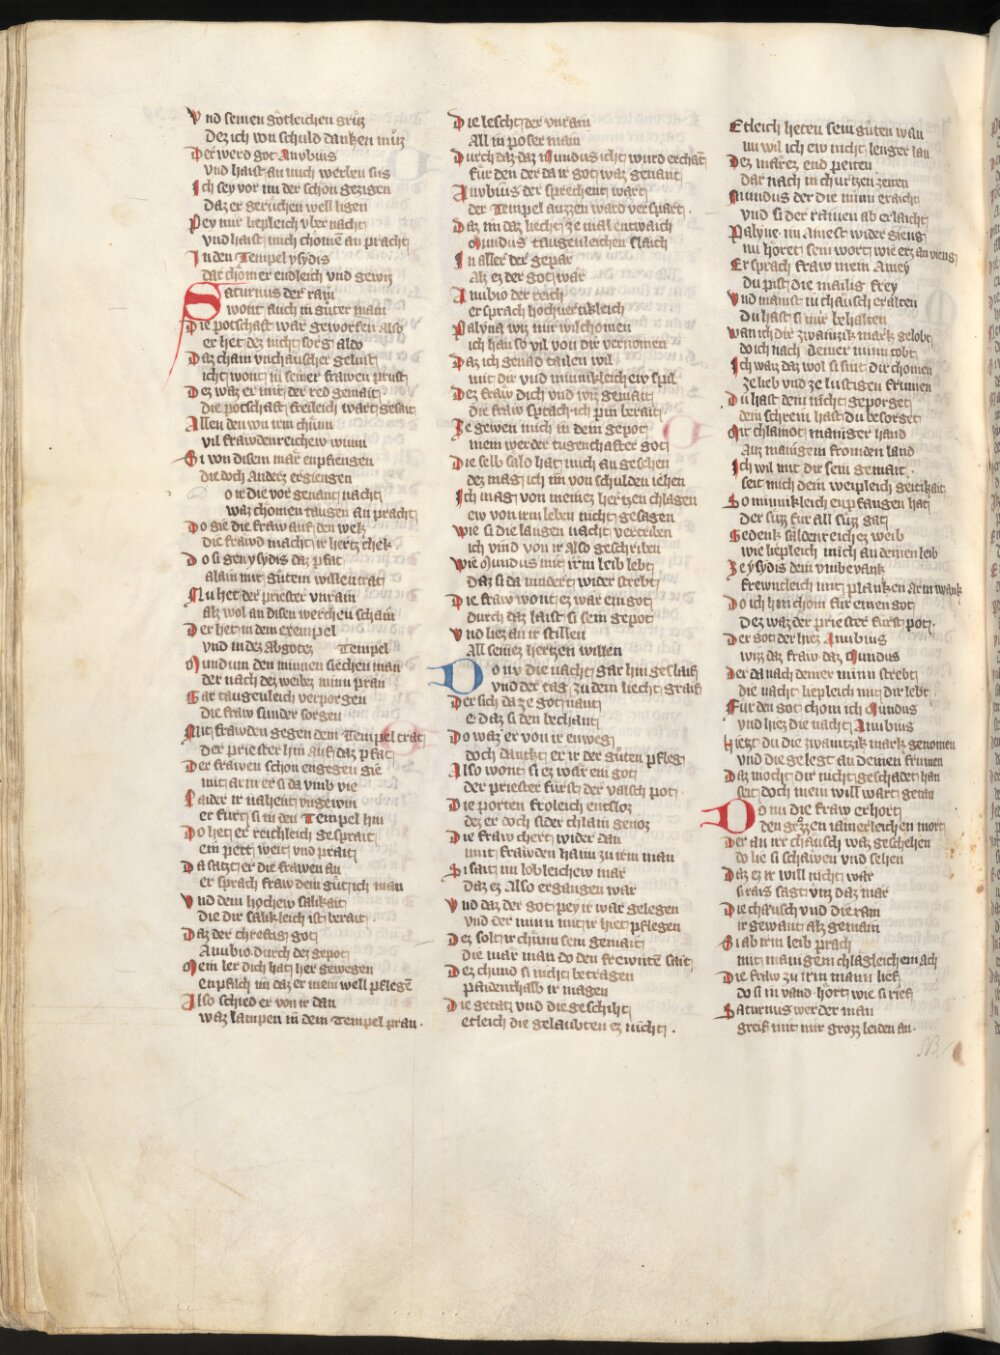 Vnd seinen gotleichen grůz
Dez ich von schuld danken můz
Der werd got Anubius
vnd haist an mich werfen sus
Ich sey vor im der schon gezigen
Daz er geruchen well ligen
Pey mir liepleich vber nacht
vnd haist mich chomen an pracht
In den Tempel ysydis
dar chom er endleich vnd gewis
Saturnus der rain
wont auch in gůter main
Die potschaft wär geworfen also
er het dez nicht sorg aldo
Daz chain vnchäuscher gelust
icht wont in seiner frawen prust
Dez waz er mit der red gemait
die potschaft freileich wart geseit
Allen den von irem chünn
vil frawdenreichew wunn
Si von disem mär enpfiengen
die doch Anderz ergiengen
o ir die vor genant nacht
waz chomen taugen an pracht
Do gie die fraw auf den wek
die frawd macht ir hertz chek
Do si gen ysydis daz pfat
alain mit gůtem willen trat
Nu het der priester vnrain
alz wol an disen werchen schain
Der het in dem exempel
vnd in dez abgotez Tempel
Mundum den minnen siechen man
der nach dez weibez minn pran
Gar taugenleich verporgen
die fraw sunder sorgen
Mit frawden gegen dem Tempel trat
der priester hin auf daz pfat
Der frawen schon engegen gie
mit arm er si da vmb vie
Laider ir nahent vngewin
er fürt si in den Tempel hin
Do het er reichleich gesprait
ein pett weit vnd prait
Da satzt er die frawen an
er sprach fraw dein gůt ich man
Vnd dein hochew salikait
die dir säklich ist berait
Daz der chreftig got
Anubio durch dez gepot
Mein ler dich hat her gewegen
enpfilch im daz er mein well pflegē
Also schied er von ir dan
waz lampen in dem Tempel pran
Die lescht der vnrain
All in pöser main
Durch daz daz Mundus icht wurd erchāt
für den der da ir got waz genant
Anubius der sprechent wart
der Tempel auzzen ward verspart
Daz im daz liecht ze mal entwaich
Mundus taugenleichen slaich
In aller der gepär
Alz ez der got wär
Anubio der reich
er sprach hochuertikleich
Palyna wiz mir wilchomen
ich han so vil von dir vernomen
Daz ich genad tailen wil
mit dir vnd minnikleich ew spil
Dez fraw dich vnd wiz gemait
die fraw sprach ich pin berait
Ze gewen mich in dein gepot
mein werder tugenthafter got
Die selb salo hat mich an geschen
dez mag ich im von schulden iehen
Ich mag von meinez hertzen chlagen
ew von irm leben nicht gesagen
Wie si die langen nacht vertriben
ich vind von ir also geschriben
Wie Mundus mit irm leib lebt
daz si da mindert wider strebt
Die fraw wont ez wär ein got
durch daz laist si sein gepot
Vnd liez an ir stillen
All seinez hertzen willen
Do nv die nacht gar hin geslaif
vnd der tag zu dem liecht graif
Der sich da ze got nant
e daz si den bechant
Do waz er von ir enweg
doch dancket er ir der gůten pfleg
Also wont si ez wär ein got
der priester fürst der valsch pot
Die porten froleich entsloz
dez er doch sider chlain genoz
Die fraw chert wider dan
mit frawden haim zu irm man
Si sait im lobleichew mär
daz ez Also ergangen wär
Vnd daz der got pey ir wär gelegen
vnd der minn mit ir hiet pflegen
Dez solt ir chünn sein gemait
die mär man do den frewnten sait
Dez chund si nicht betragen
paidenthalb ir magen
Die getat vnd die geschiht
etleich die gelaubten ez nicht
Etleich heten sein gůten wan
nu wil ich ew nicht lenger lan
Dez märez end peiten
dar nach in churtzen zeiten
Mundus der die minn eraicht
vnd si der rainen ab erlaicht
Palyne im Ainest wider gieng
nu höret sein wort wie erz an vieng
Er sprach fraw mein Amey
du pist die mailig frey
Vnd mainst in chäusch eralten
Du hast si mir behalten
wan ich dir zwaintzik mark gelobt
do ich nach deiner minn tobt
Ich wän daz wol si sint dir chomen
ze lieb vnd ze lustigen frumen
Du hast dem nicht geporget
dem schrein hast du besorget
Mit chlainot maniger hand
Auz manigem fromden land
Ich wil mit dir sein gemait
seit mich dein weipleich gütikait
So minnikleich enpfangen hat
der süzz für all süzz gat
Gedenk säldenreichez weib
wie liepleich mich an deinen leib
Ze ysydis dein vmbevank
frewntleich mit planken arm wank
Do ich hin chom für einen got
Dez waz der priester fürst pot
Der got der hiez Anubius
wizz daz fraw daz Mundus
Der da nach deiner minn strebt
die nacht liepleich mit dir lebt
Für den got chom ich Mundus
vnd hiez die nacht Anubius
Hietzt du die zwaintzik mark genomen
vnd die gelegt an deinen frumen
Daz mocht dir nicht geschadet han
seit doch mein will wart getan
Do nu die fraw erhort
den grozzen iämerleichen mort
Der an irr chäusch waz geschehen
do lie si schawen vnd sehen
Daz ez ir will nicht wär
Die chäusch vnd die rain
ir gewant alz gemain
Si ab irm leib prach
mit manigem chlägleichem ach
Die fraw zu irm mann lief
do si in vand hört wie si rief
Saturnus werder man
greif mit mir grozz leiden an